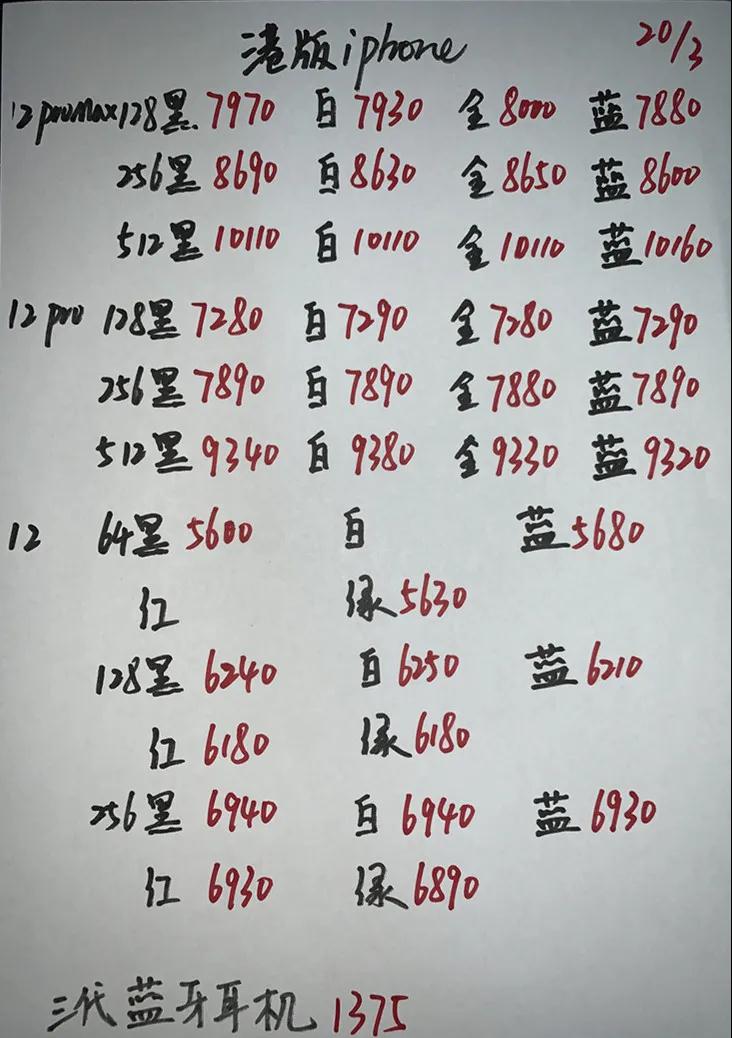 港版iphone 20/3
12 promax 128黑 7970 白 7930 金 8000 蓝 7880
256黑 8690 白 8630 金 8650 蓝 8600
512黑 10110 白 10110 金 10110 蓝 10160
12 pro 128黑 7280 白 7290 金 7280 蓝 7290
256黑 7890 白 7890 金 7880 蓝 7890
512黑 9340 白 9380 金 9330 蓝 9320
12 64黑 5600 白 蓝 5680
红 绿 5630
128黑 6240 白 6250 蓝 6210
红 6180 绿 6180
256黑 6940 白 6940 蓝 6930
红 6930 绿 6890
三代蓝牙耳机 1375